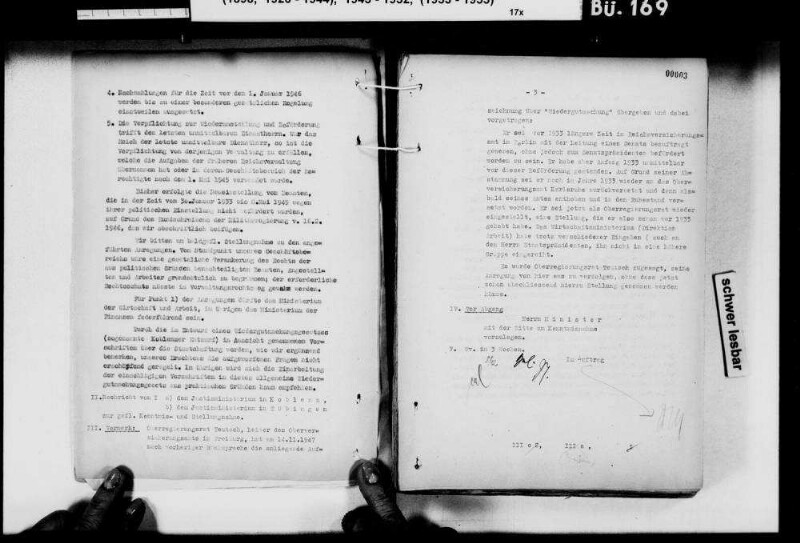 (1898, 1920 - 1944), 1945 - 1952, (1953 - 1955)
17x
Bü. 169
4. Nachzahlungen für die Zeit vor dem 1. Januar 1946
werden bis zu einer besonderen gesetzlichen Regelung
einstweilen ausgesetzt.
5. Die Verpflichtung zur Wiedereinstellung und Beförderung
trifft den letzten unmittelbaren Dienstherrn. War das
Reich der letzte unmittelbare Dienstherr, so ist die
Verpflichtung von derjenigen Verwaltung zu erfüllen,
welche die Aufgaben der früheren Reichsverwaltung
übernommen hat oder in deren Geschäftsbereich der
nach dem 1. Mai 1945 verwendet wurde.
Bisher erfolgte die Neueinstellung von Beamten,
die in der Zeit vom 30. Januar 1933 bis 8. Mai 1945 wegen
ihrer politischen Einstellung nicht befördert wurden,
auf Grund des Runderlasses der Militärregierung v. 16.8.
1946, den wir abschriftlich beifügen.
Wir bitten um Stellungnahme zu den ange-
führten Anregungen. Vom Standpunkt unseres Geschäftsbe-
reichs wäre eine gesetzliche Verankerung des Rechts der
aus politischen Gründen benachteiligten Beamten, Angestell-
ten und Arbeiter grundsätzlich zu begrüssen; der erforderliche
Rechtsschutz müsste im Verwaltungsrechtsweg gewährt werden.
Für Punkt 1) der Anregungen dürfte das Ministerium
der Wirtschaft und Arbeit, im übrigen das Ministerium der
Finanzen federführend sein.
Durch die im Entwurf eines Wiedergutmachungsgesetzes
(sogenannte Koblenzer Entwurf) in Aussicht genommenen Vor-
schriften über die Staatshaftung werden, wie wir ergänzend
bemerken, unseres Erachtens die aufgeworfenen Fragen nicht
erschöpfend geregelt. Im übrigen wird sich die Einarbeitung
der einschlägigen Vorschriften in dieses allgemeine Wieder-
gutmachungsgesetz aus praktischen Gründen kaum empfehlen.
II. Nachricht von I a) dem Justizministerium in Koblenz,
b) dem Justizministerium in Tübingen
zur gefl. Kenntnis- und Stellungnahme.
III. Vermerk: Oberregierungsrat Teutsch, Leiter des Oberver-
sicherungsamts in Freiburg, hat am 14.11.1947
nach vorheriger Rücksprache die anliegende Auf-
00003
- 3 -
zeichnung über "Wiedergutmachung" übergeben und dabei
vorgetragen:
Er sei vor 1933 längere Zeit im Reichsversicherungs-
amt in Berlin mit der Leitung eines Senats beauftragt
gewesen, ohne jedoch zum Senatspräsidenten befördert
worden zu sein. Er habe aber Anfang 1933 unmittelbar
vor dieser Beförderung gestanden. Auf Grund seiner Ab-
stammung sei er noch im Jahre 1933 wieder an das Ober-
versicherungsamt Karlsruhe zurückversetzt und dann als-
bald seines Amtes enthoben und in den Ruhestand ver-
setzt worden. Er sei jetzt als Oberregierungsrat wieder
eingestellt, eine Stellung, die er also schon vor 1933
gehabt habe. Das Wirtschaftsministerium (Direktion
Arbeit) habe trotz verschiedener Eingaben (auch an
den Herrn Staatspräsidenten, ihn nicht in eine höhere
Gruppe eingereiht.
Es wurde Oberregierungsrat Teutsch zugesagt, seine
Anregung von hier aus zu verfolgen, ohne dass jetzt
schon abschliessend hierzu Stellung genommen werden
könne.
IV. Vor Abgang
Herrn Minister
mit der Bitte um Kenntnisnahme
vorzulegen.
V. Wv. in 3 Wochen.
Im Auftrag
schwer lesbar